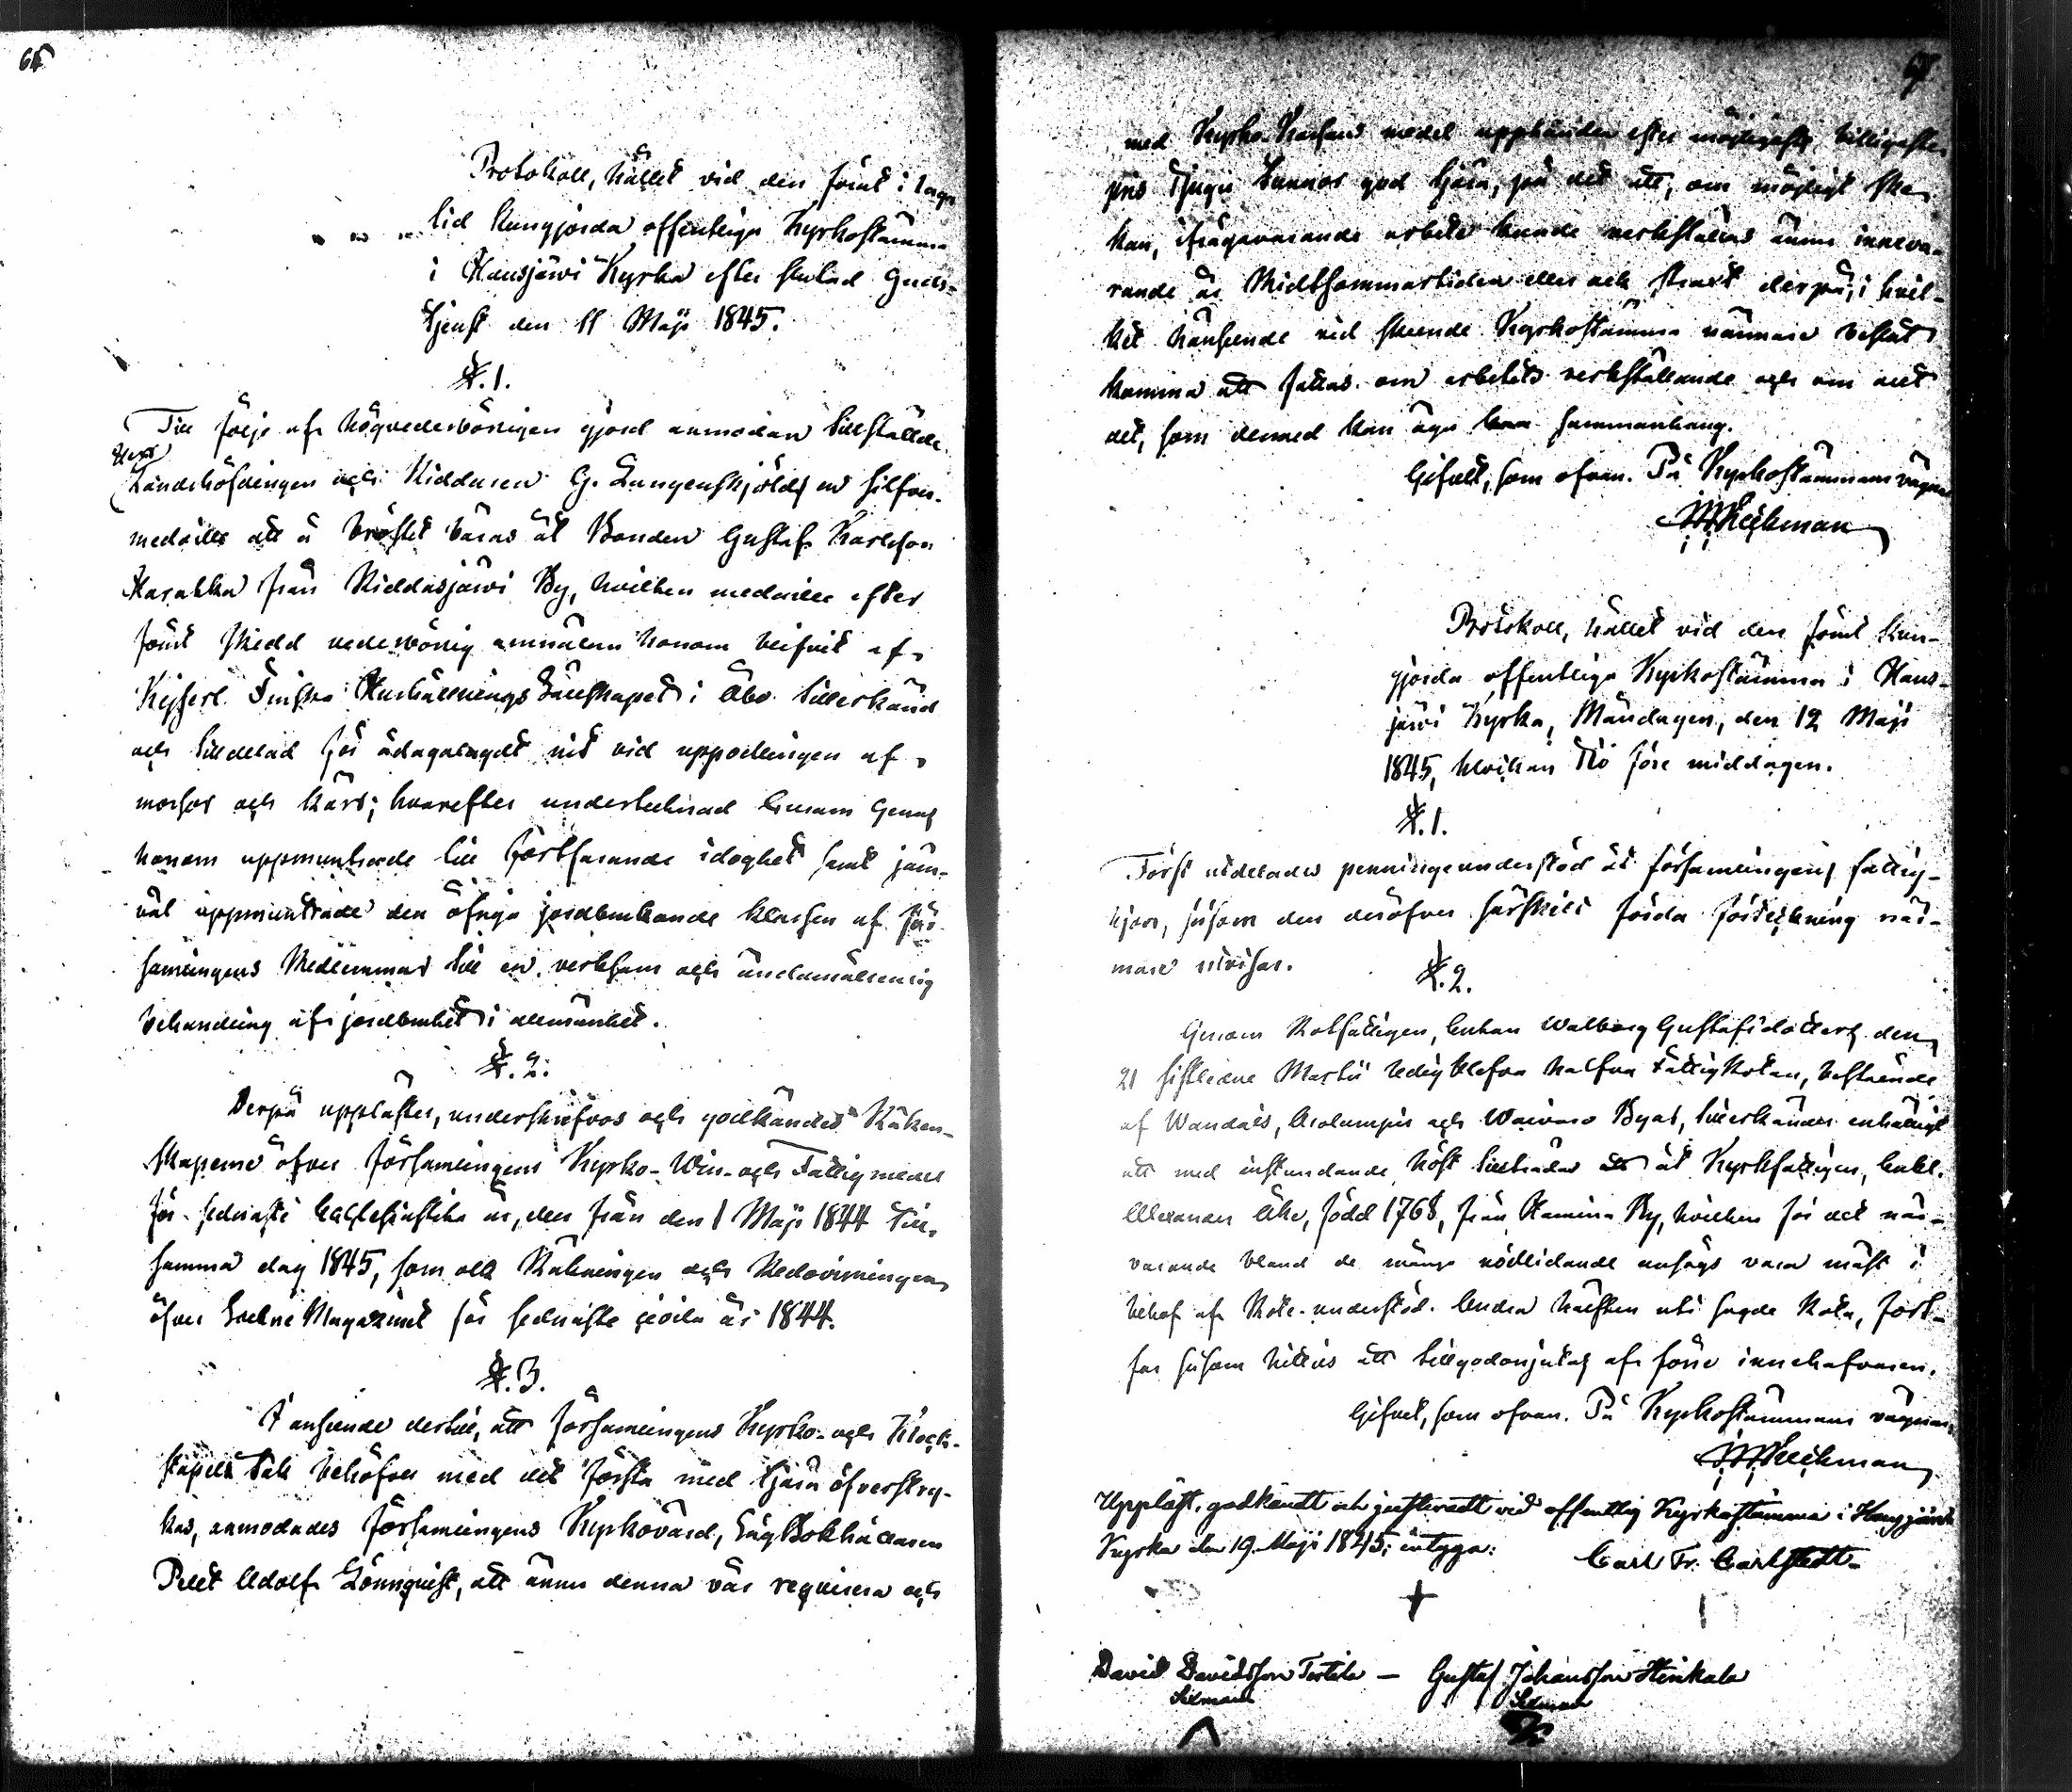 66
Protokoll, hållet vid den förut i laga
tid kungjorda offentliga Kyrkostämma
i Hausjärvi Kyrka efter slutad Guds-
tjenst den 11 Maji 1845.
§. 1.
Till följe af högvederbörigen gjord anmodan tillställde
Herr
Landshöfdingen och Riddaren G. Langenskjölds en silfver-
medaille att å bröstet bäras åt Bonden Gustaf Karlsson
Harakka från Riddasjärvi By, hvilken medaille efter
förut skedd vederbörlig anmälan honom blifvit af
Kejserl. Finska Hushållnings Sällskapet i Åbo tillerkänd
och tilldelad för ådagalagdt nit vid uppodlingen af
mossor och kärr; hvarefter undertecknad
honom uppmuntrade till fortfarande idoghet samt jäm-
väl uppmuntrade den öfriga jordbrukande klassen af för-
samlingens Medlemmar till en verksam och ändamålsenlig
behandling af jordbruket i allmänhet.
§. 2.
Derpå upplästes, underskrefvos och godkändes Räken-
skaperne öfver församlingens Kyrko- Win- och Fattigmedel
för sednaste Ecclesiastika år, eller från den 1 Maji 1844 till
samma dag 1845, som ock Räkningen och Redovisningen
öfver Låne Magazinet för sednaste civila år 1844.
§. 3.
I anseende dertill, att församlingens Kyrko- och Klock-
stapels tak behöfver med det första med tjära öfverstry-
kas, anmodades församlingens Kyrkovärd, Bokhållaren
Adolf Lönnqvist, att ännu denna vår requirera och
med Kyrko-Kassans medel upphandla efter möjligaste billigaste
pris Tjugu Tunnor god tjära, på det att, om möjligt ske
kan, ifrågavarande arbete kunde verkställas ännu inneva-
rande år Midtsommartiden eller ock strax derpå, i hvil-
ket hänseende vid skeende Kyrkostämma närmare beslut
komma att fattas om arbetets verkställande och om allt
det, som dermed kan äga sammanhang.
Gifvet, som ofvan. På Kyrkostämmans vägnar
Protokoll, hållet vid den förut kun-
gjorda offentliga Kyrkostämma i Haus-
järvi Kyrka, Måndagen, den 12 Maji
1845, klockan Tio före middagen.
§. 1.
Först utdelades penningeunderstöd åt församlingens fattig-
hjon, såsom den deröfver särskilt förda förteckning när-
mare utvisar.
§. 2.
Genom Rotfattigen, Enkan Walborg Gustafsdotters den
21 sistledne Martii ledigblefna halfva Fattigrotan, bestående
af Wandais, och Waivaro Byar, tillerkändes enhälligt
att med instundande höst tillträdas åt Kyrkfattigen,
Alexander Åke, född 1768, från Kamina By, hvilken för det när-
varande bland de många nödlidande ansågs vara mäst i
behof af Rote-understöd. Andra hälften uti sagde Rota, fort-
far såsom hittils att tillgodonjutas af förre innehafvaren.
Gifvet, som ofvan. På Kyrkostämmans vägnar,
Uppläst, godkändt och justeradt vid offentlig Kyrkostämma i Hausjärvi
Kyrka den 19 Maji 1845; intyga:
Carl Fr. Carlstedt
David Davidsson Terhila — Gustaf Johansson Hinkala